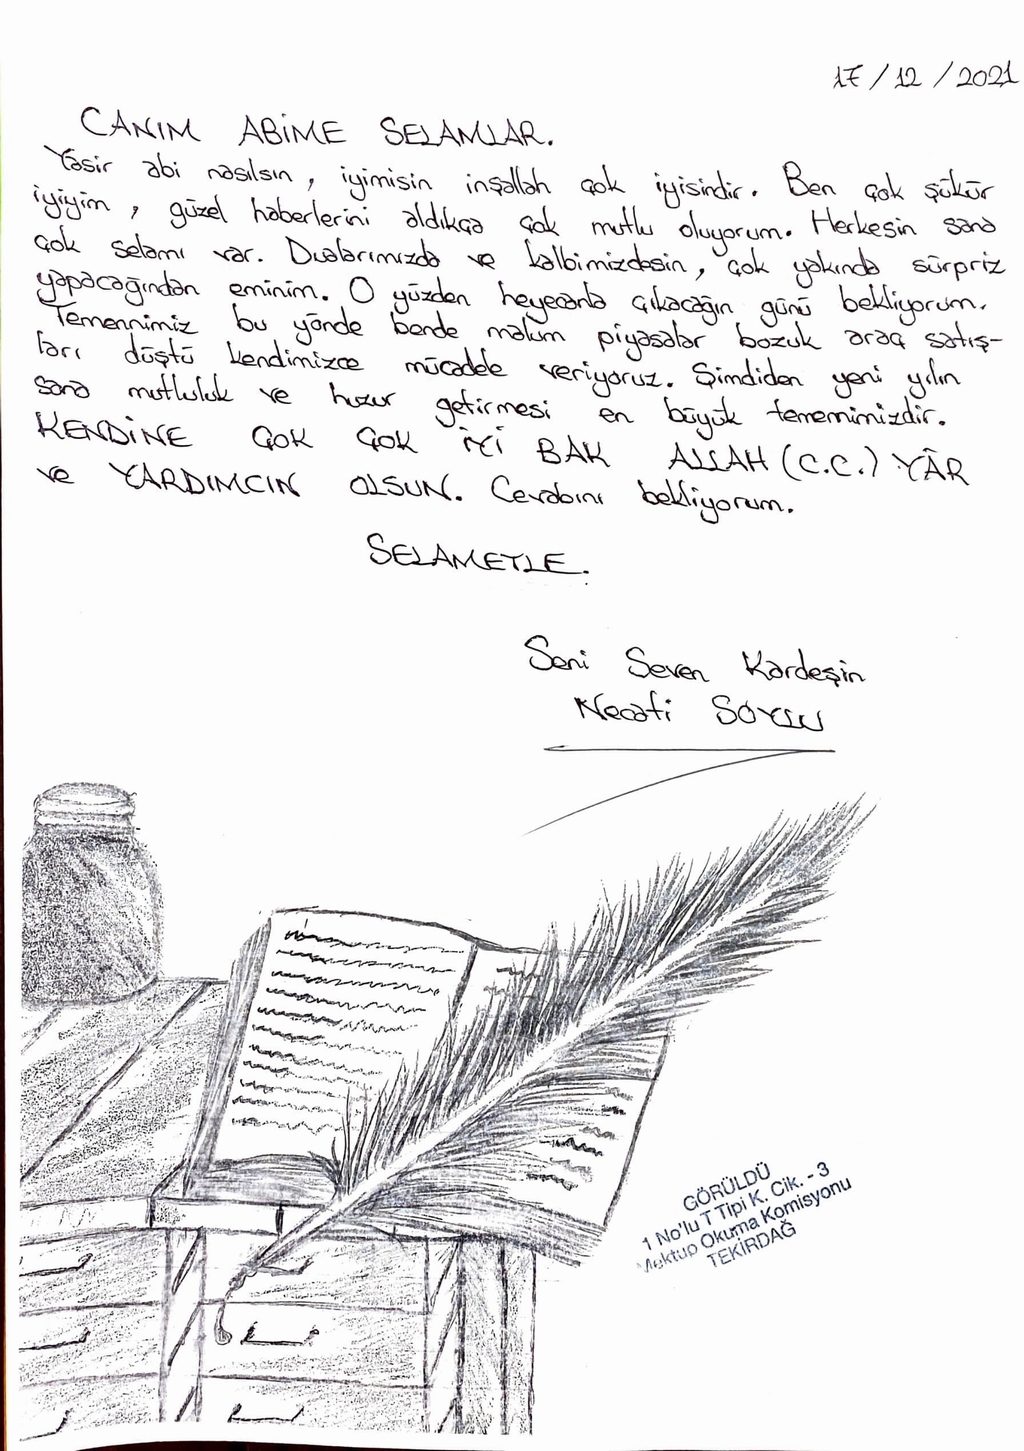 17/12/2021
CANIM ABİME SELAMLAR.
Yasir abi nasılsın, iyimisin inşallah çok iyisindir. Ben çok şükür
iyiyim, güzel haberlerini aldıkça çok mutlu oluyorum. Herkesin sana
çok selamı var. Dualarımızda ve kalbimizdesin, çok yakında sürpriz
yapacağından eminim. O yüzden heyecanla çıkacağın günü bekliyorum.
Temennimiz bu yönde bende malum piyasalar bozuk araç satış-
ları düştü kendimizce mücadele veriyoruz. Şimdiden yeni yılın
sana mutluluk ve huzur getirmesi en büyük temennimizdir.
KENDİNE ÇOK ÇOK İYİ BAK ALLAH (C.C.) YÂR
ve YARDIMCIN OLSUN. Cevabını bekliyorum.
SELAMETLE.
Seni Seven Kardeşin
Necati SOYLU
GÖRÜLDÜ
1 No'lu T Tipi K. Cik. - 3
Mektup Okuma Komisyonu
TEKİRDAĞ